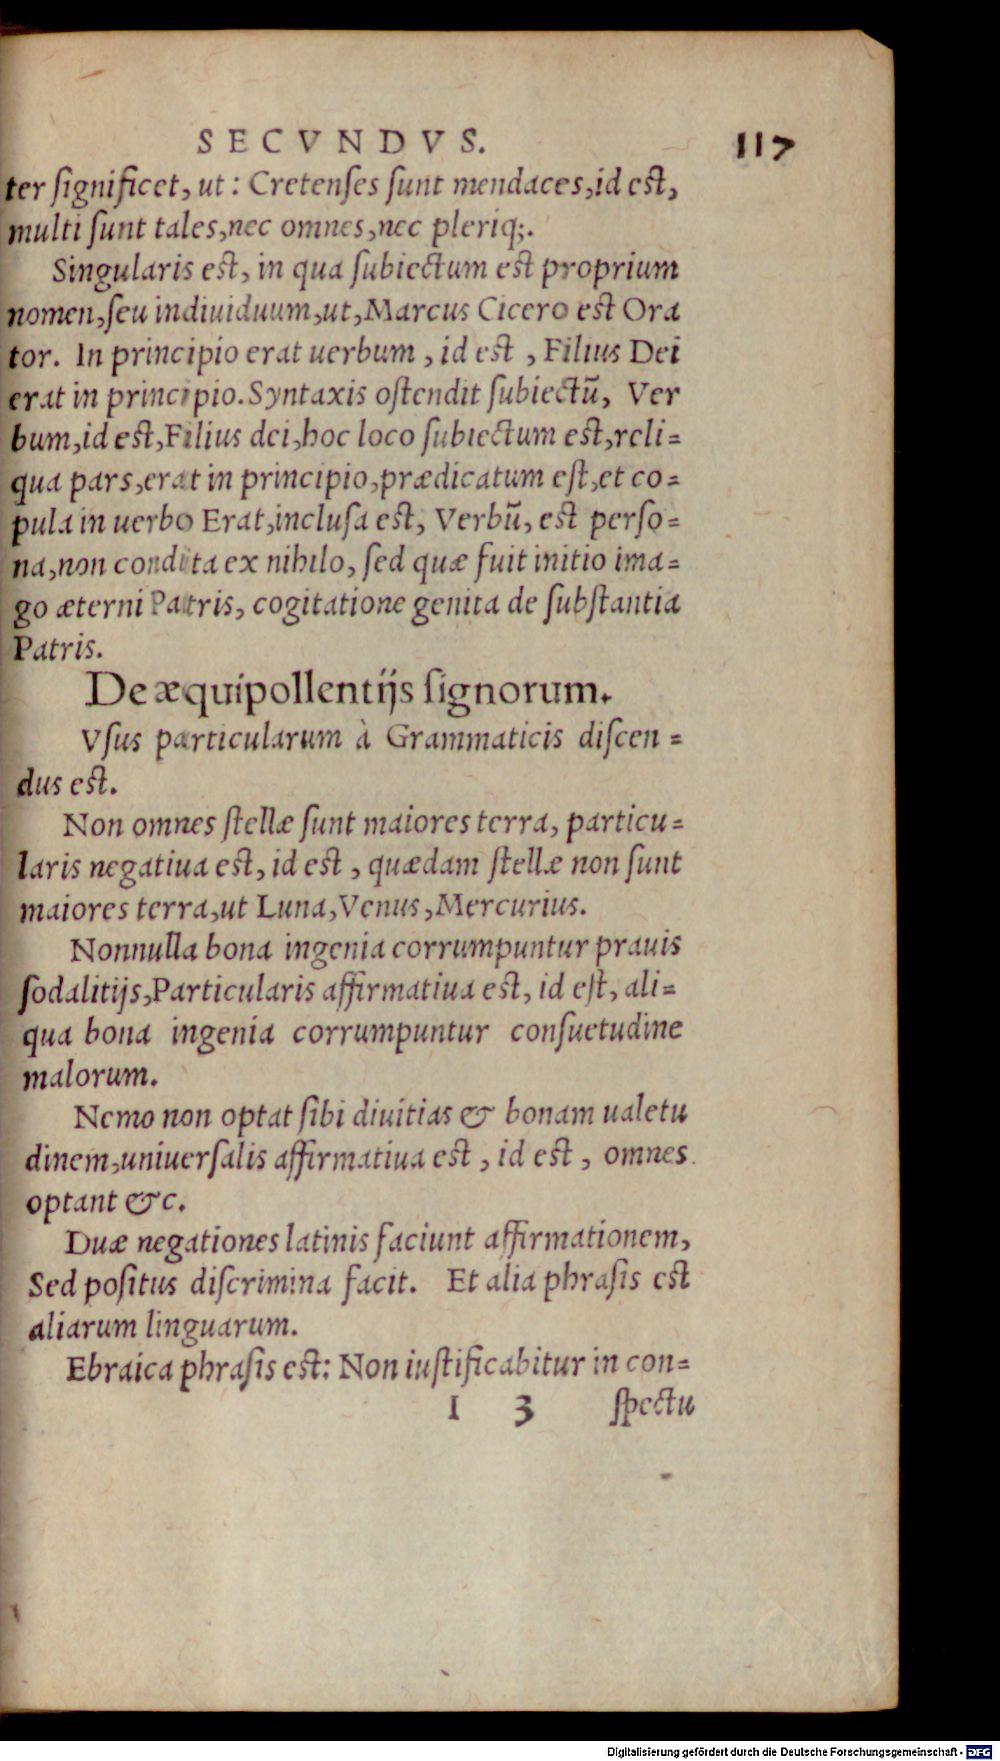 SECVNDVS. 117
ter ſignificet, ut: Cretenſes ſunt mendaces, id est,
multi ſunt tales, nec omnes, nec pleriq;.
Singularis est, in qua ſubiectum est proprium
nomen, ſeu indiuiduum, ut, Marcus Cicero est Ora
tor. In principio erat uerbum, id est, Filius Dei
erat in principio. Syntaxis oſtendit ſubiectū, Ver
bum, id est, Filius dei, hoc loco ſubiectum est, reli=
qua pars, erat in principio, prædicatum eſt, et co=
pula in uerbo Erat, incluſa est, Verbū, est perſo=
na, non condita ex nihilo, ſed quæ fuit initio ima=
go æterni Patris, cogitatione genita de ſubſtantia
Patris.
De æquipollentijs ſignorum.
Vſus particularum à Grammaticis diſcen=
dus est.
Non omnes ſtellæ ſunt maiores terra, particu=
laris negatiua est, id est, quædam ſtellæ non ſunt
maiores terra, ut Luna, Venus, Mercurius.
Nonnulla bona ingenia corrumpuntur prauis
ſodalitijs, Particularis affirmatiua est, id eſt, ali=
qua bona ingenia corrumpuntur conſuetudine
malorum.
Nemo non optat ſibi diuitias & bonam ualetu
dinem, uniuerſalis affirmatiua est, id est, omnes
optant &c.
Duæ negationes latinis faciunt affirmationem,
Sed poſitus diſcrimina facit. Et alia phraſis est
aliarum linguarum.
Ebraica phraſis est: Non iuſtificabitur in con=
I 3 ſpectu
Digitalisierung gefördert durch die Deutsche Forschungsgemeinschaft - DFG